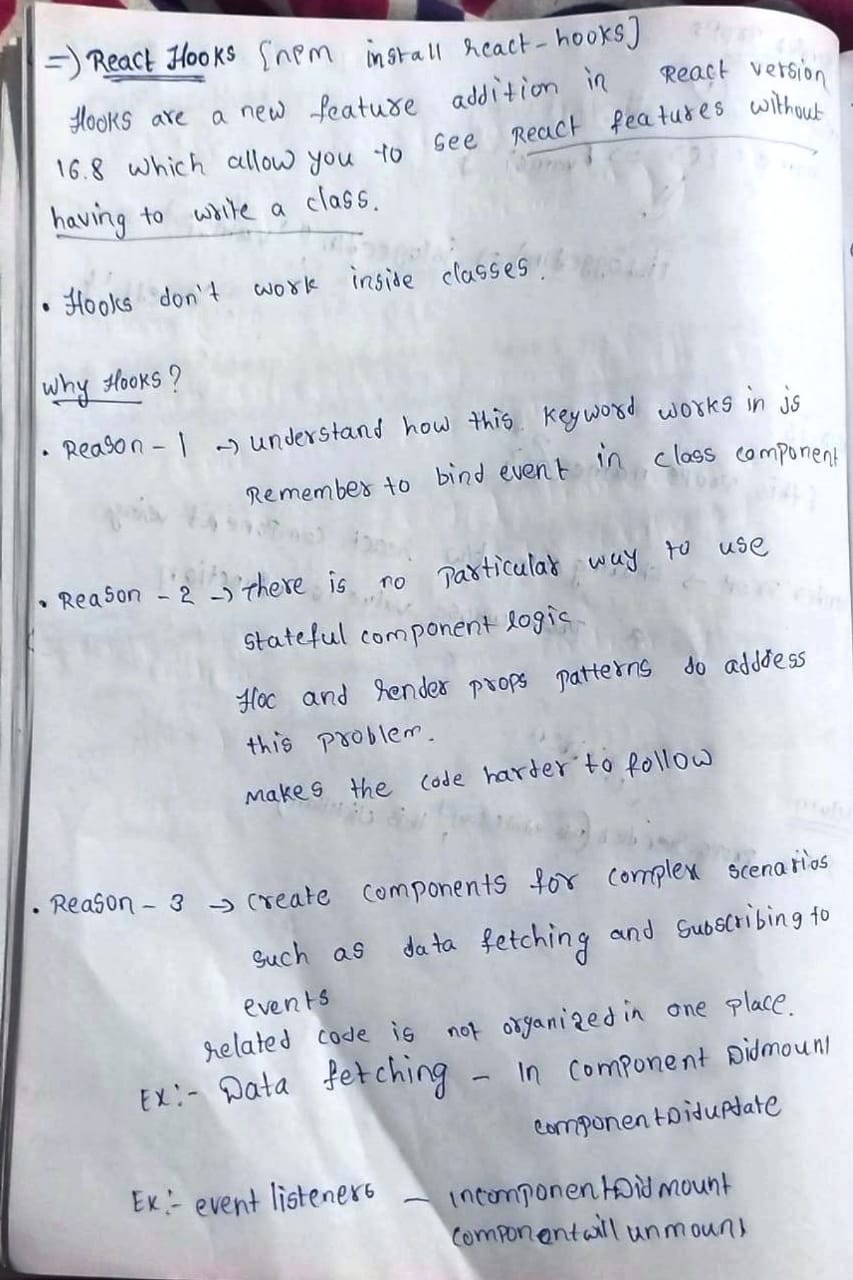 =) React Hooks {npm install react-hooks]
Hooks are a new feature addition in React version
16.8 which allow you to see React features without
having to write a class.
• Hooks don't work inside classes.
Why Hooks?
• Reason - 1 → understand how this keyword works in js
Remember to bind event in class component
• Reason - 2 → there is no particular way to use
stateful component logic
Hoc and render props patterns do address
this problem.
makes the code harder to follow
• Reason - 3 → create components for complex scenarios
such as data fetching and subscribing to
events
related code is not organized in one place.
Ex:- Data fetching - In component Didmount
componentDidupdate
Ex:- event listeners - IncomponentDidmount
componentwill unmount